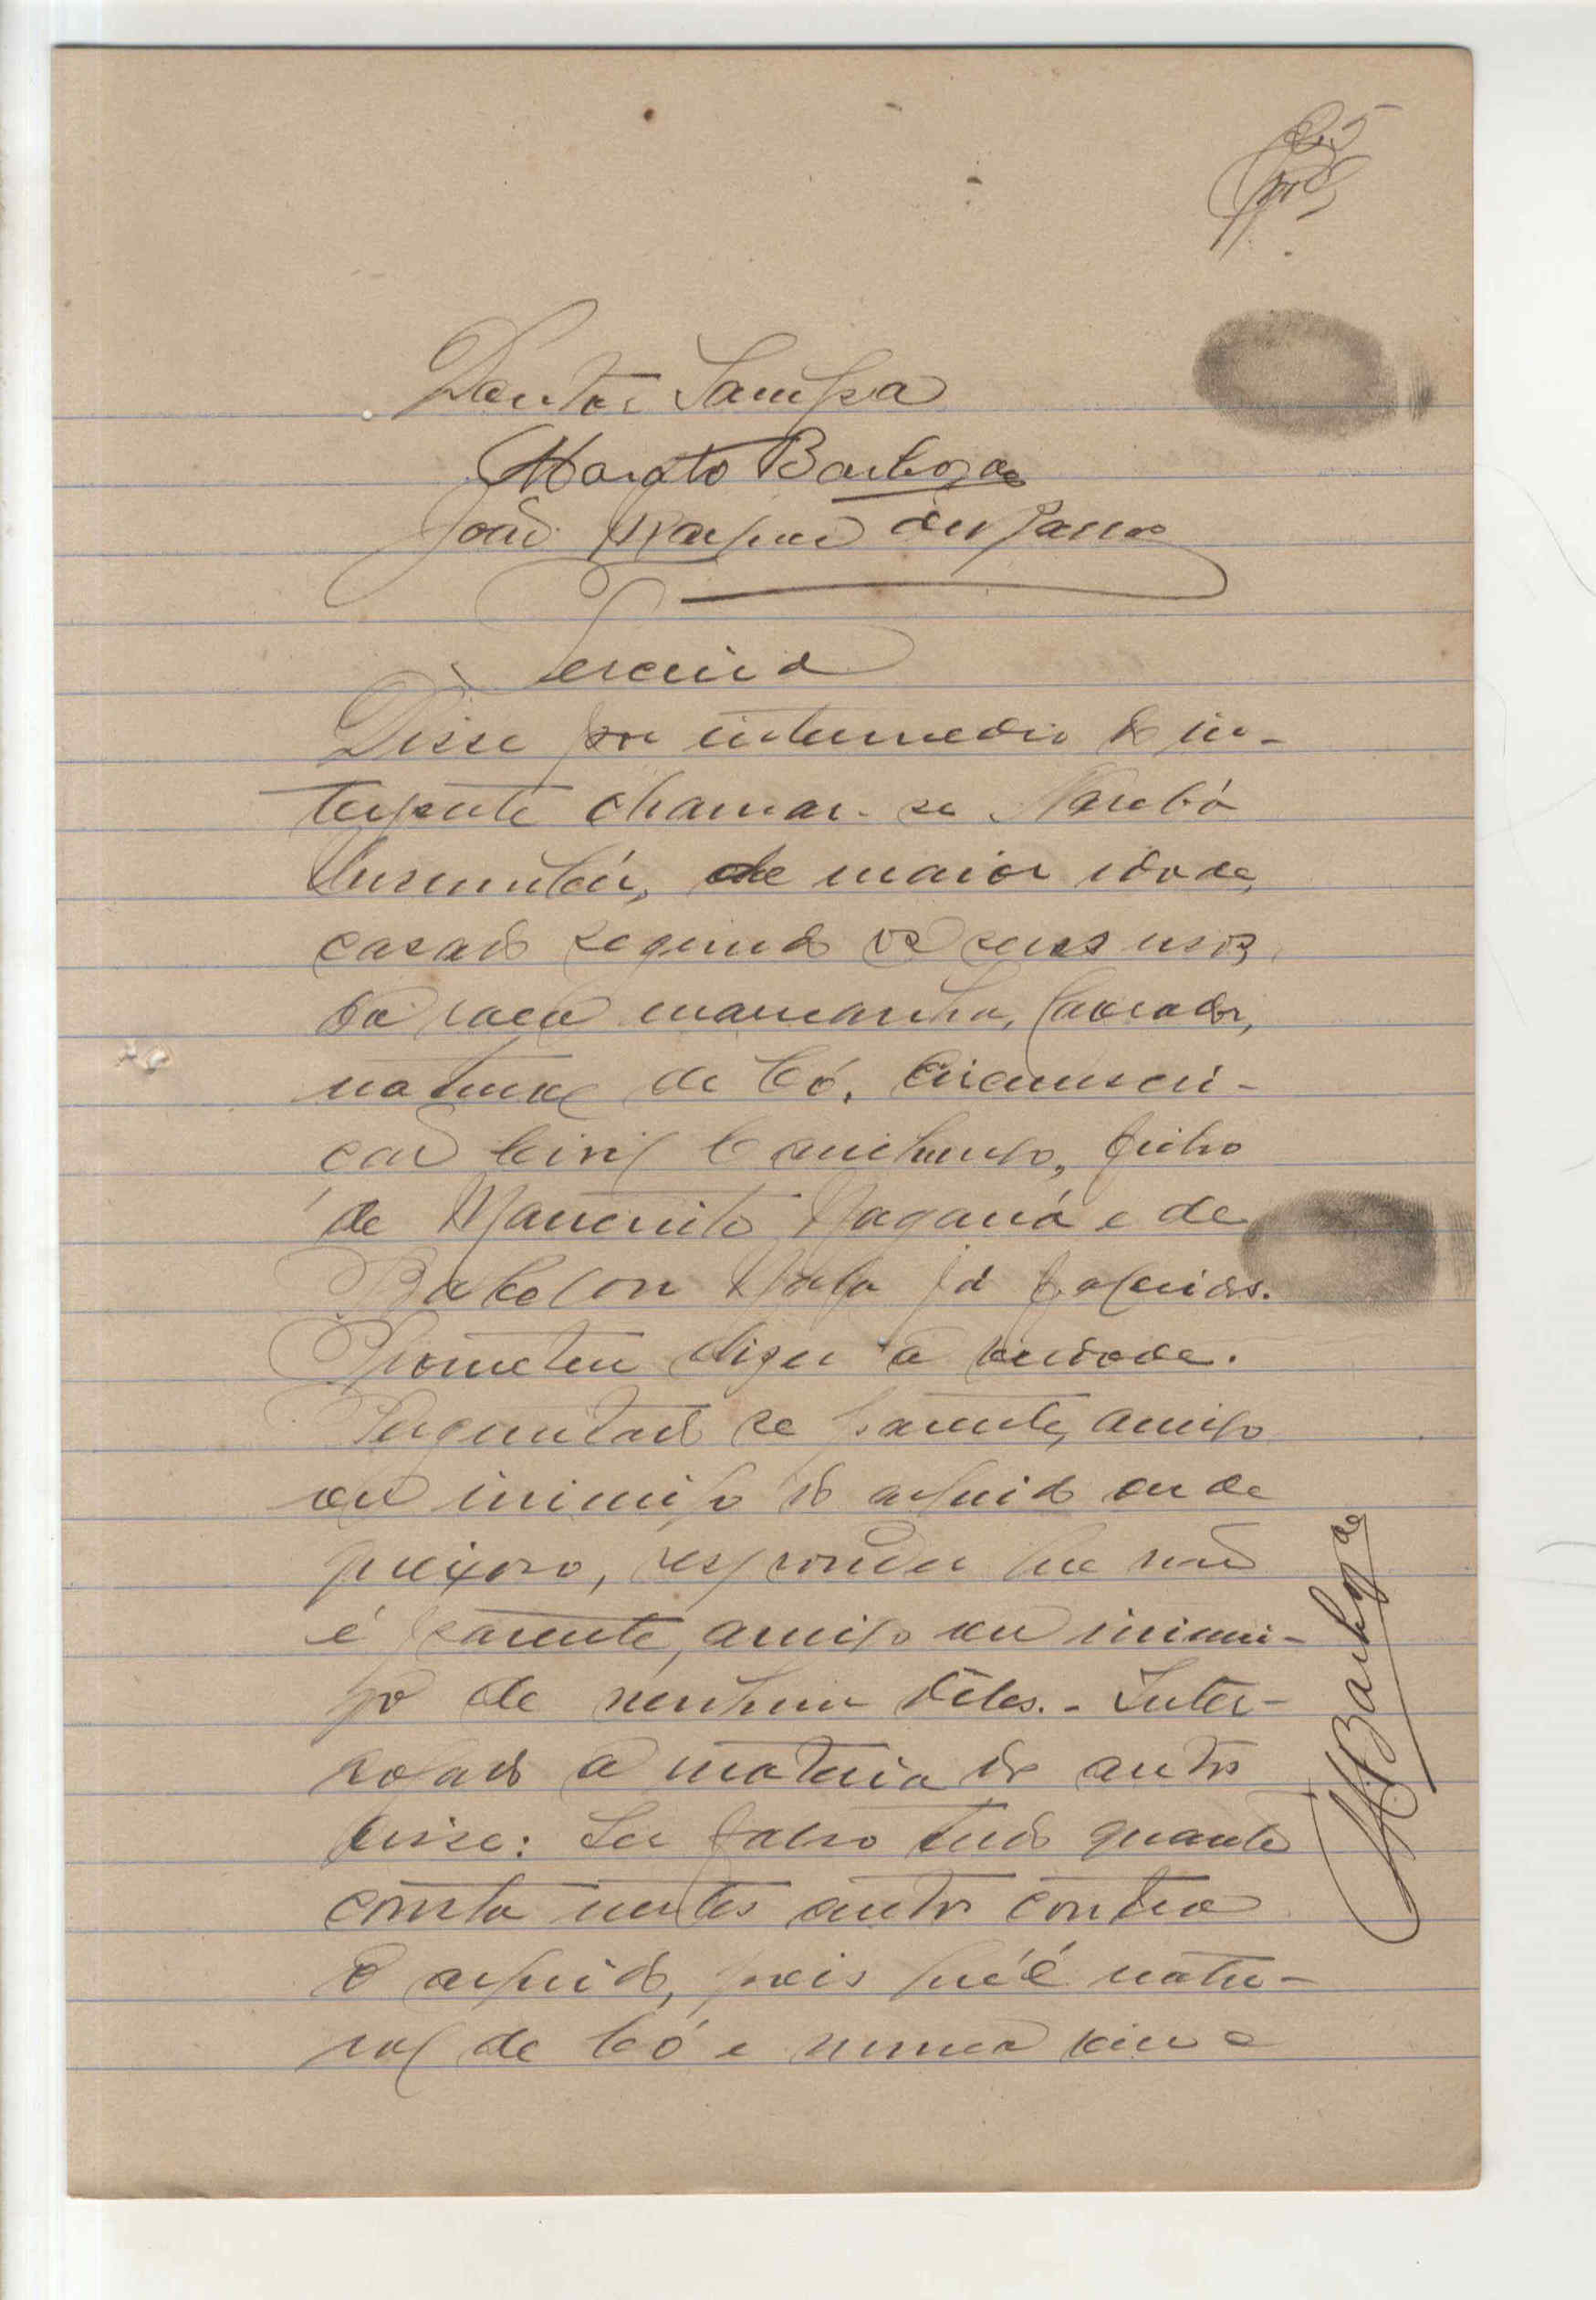 Santos Sampa
Horato Barboza
João dos Passos
Terceira
Disse por intermedio do in-
terprete chamar-se Narebá
de maior idade,
casado segundo os seus usos,
da raça mancanha, lavrador,
natural de Có, Circunscri-
ção Civil Canchungo, filho
de e de
já falecidos.
Prometeu dizer a verdade.
Perguntado se parente, amigo
ou inimigo do arguido ou de
queixoso, respondeu que não
é parente, amigo ou inimi-
go de nenhum dêles. - Inter-
rogado á materia do autos
disse: Ser falso tudo quanto
consta nestes autos contra
o arguido, pois que é natu-
ral de Có e nunca viu a
HBarboza